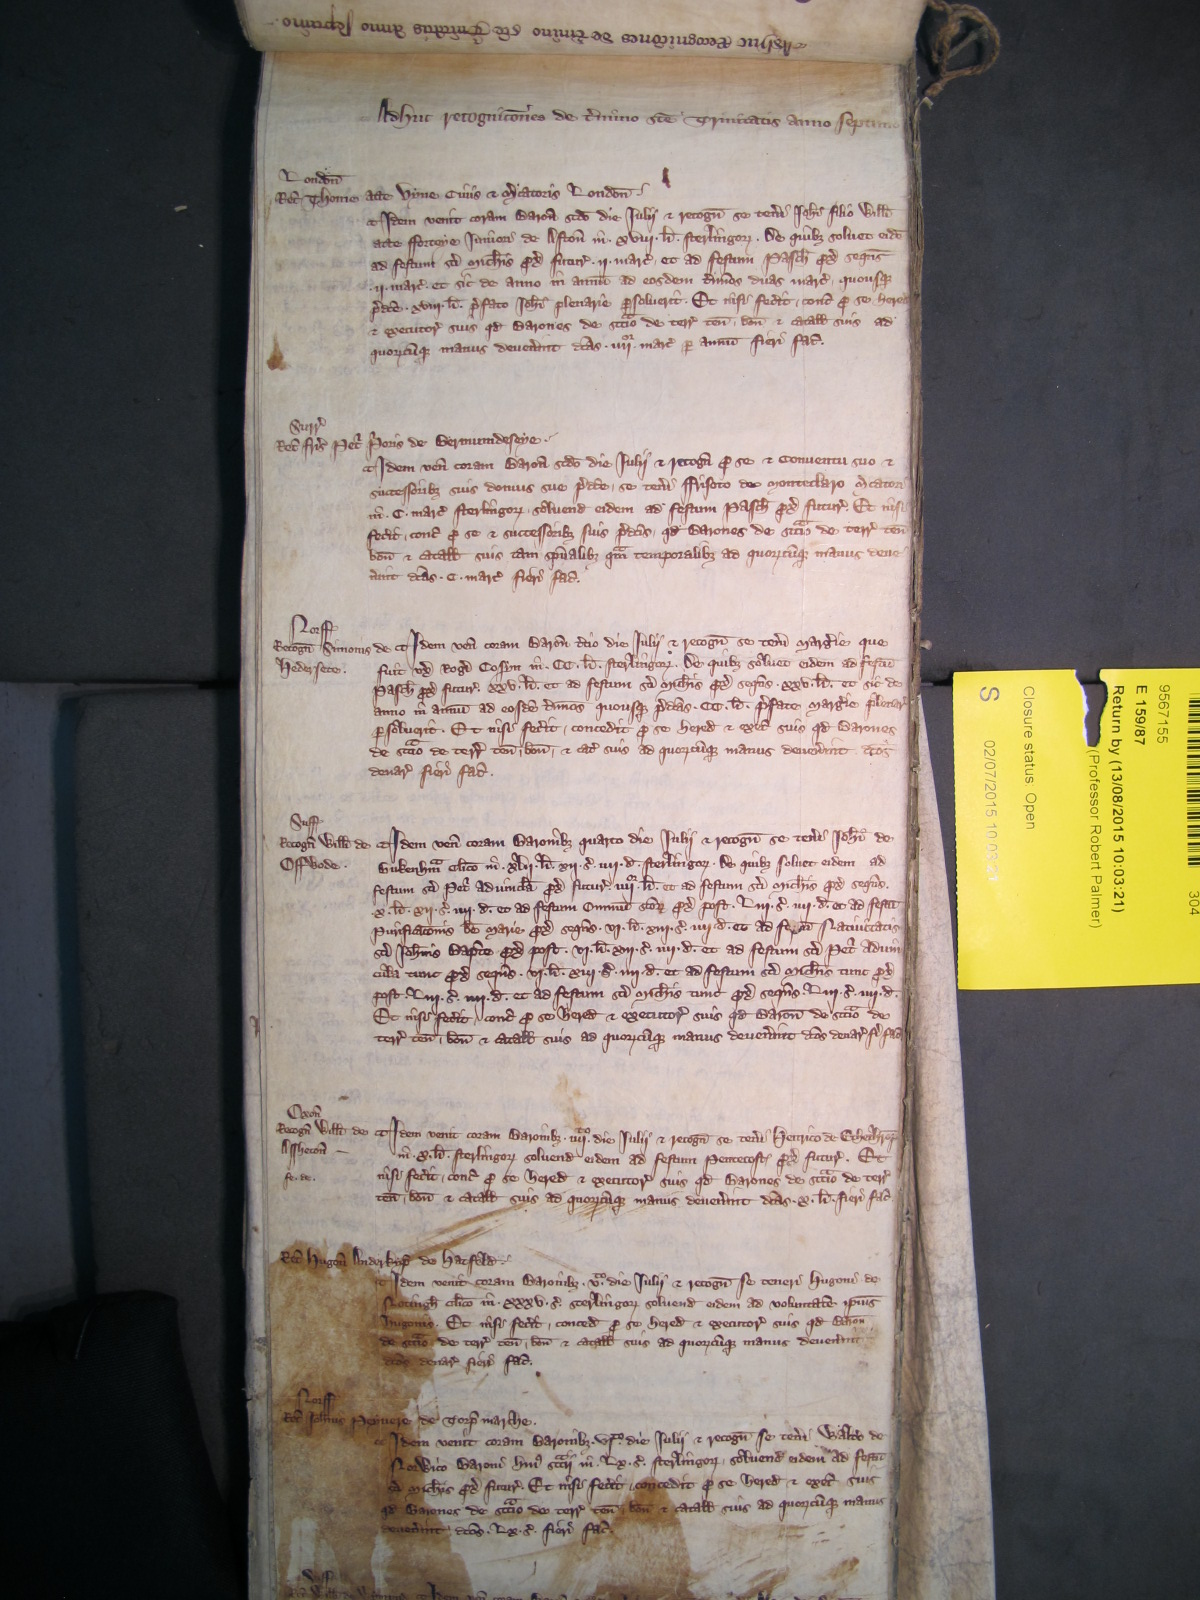 Adhuc Recogniciones de t'mino sce Trinitatis anno septimo
Adhuc recognicões de t'mino sce Trinitatis anno septimo
London
Rec Thome atte Vyne Civis & m'catoris London
Idem venit coram Baron scdo die Julii & recogn se ten'i Joh'i filio Will'i
atte juniori de Aston in .xviii. li. sterlingor. De quibz solvet eid
ad festum sci Mich'is px futur .ii. marc. et ad festum Pasch px sequens
.ii. marc. et sic de anno in annu ad eosdem t'mios duas marc. quousq
p'dcas .xviii. li. p'fato Joh'i plenarie p'solverit. Et nisi fec'it, conc p se hered
& executor suis qd Barones de sccio de terr ten, bon & catall suis ad
quorcuq manus deven'int dcas .iiii or. marc p annu fieri fac.
Surr
Rec fris Pet' P'oris de Bermundeseye
Idem ven coram Baron scdo die Julii & recogn p se & Conventu suo &
successoribz suis domus sue p'dce, se ten'i ffrisoto de Monteclaro m'catori
in .C. marc sterlingor, solvend eidem ad festum Pasch px futur. Et nisi
fec'it, conc p se & successoribz suis p'dcis, qd Barones de sccio de terr ten
bon & catall suis tam sp'ualibz qm temporalibz ad quorcuq manus deve
n'int dcas .C. marc fieri fac.
Norff
Recogn Simonis de Idem ven coram Baron t'cio die Julii & recogn se ten'i Marg'ie que
Hedersete. fuit ux Rog'i Cosyn in .CC. li. sterlingor. De quibz solvet eidem ad festu
Pasch px futur .xxv. li. et ad festum sci Mich'is px sequens .xxv. li. et sic de
anno in annu ad eosd t'mios quousq p'dcas .CC. li. p'fate Marg'ie plenar
p'solverit. Et nisi fec'it, concedit p se hered & exec suis qd Barones
de sccio de terr ten, bon, & cat suis ad quorcuq manus deven'int dcos
denar fieri fac.
Suff
Recogn Will'i de Idem ven coram Baronibz quarto die Julii & recogn se ten'i Joh'i de
Offwode. Bukenham clico in .xlii. li. xii. s. iiii. d. sterlingor. De quibz solvet eidem ad
festum sci Pet' advincla px futur .iiii or. li. et ad festum sci Mich'is px sequens.
.x. li. xii. s. iiii. d. et ad festum Omnium scor px post .Liii. s. iiii. d. et ad festu
Purificacionis be Marie px sequens .vi. li. xiii. s. iiii. d. et ad festu Nativitatis
sci Joh'nis Bapte px post .vi. li. xiii. s. iiii. d. et ad festum sci Pet' advin
cula tunc px sequens .vi. li. xiii. s. iiii. d. et ad festum sci Mich'is tunc px
post .Liii. s. iiii. d. et ad festum sci Mich'is tunc px sequens .Liii. s. iiii. d.
Et nisi fec'it, conc p se hered & executor suis qd Baron de sccio de
terr ten, bon & catall suis ad quorcuq manus deven'int dcos denar fi'i fac
Oxon
Recogn Will'i de Idem venit coram Baronibz .iiii to. die Julii & recogn se ten'i Henrico de
Assheton in .x. li. sterlingor solvend eidem ad festum Pentecost px futur. Et
nisi fec'it, conc p se hered & executor suis qd Barones de sccio de terr
ten, bon & catall suis ad quorcuq manus deven'int dcas .x. li. fieri fac.
Rec Hugon de Hatfeld
Idem venit coram Baronibz .v to. die Julii & recogn se teneri Hugoni de
Notingh clico in .xxxv. s. sterlingor solvend eidem ad voluntate ipius
Hugonis. Et nisi fec'it, conced p se hered & executor suis qd Baron
de sccio de terr ten, bon & catall suis ad quorcuq manus deven'int
dcos denar fieri fac.
Norff
Rec Joh'nis de
Idem venit coram Baronibz .vi to. die Julii & recogn se ten'i Walt'o de
Norwico Baroni hui' sccii in .Lx. s. sterlingor, solvend eidem ad festu
sci Mich'is px futur. Et nisi fec'it, concedit p se hered & exec suis
qd Barones de sccio de terr ten, bon & catall suis ad quorcuq manus
deven'int dcos .Lx. s. fieri fac.
Suff
9567155
E 159/87
Return by (13/08/2015 10:03:21)
(Professor Robert Palmer)
Closure status: Open
S 02/07/2015 10:03:21
304